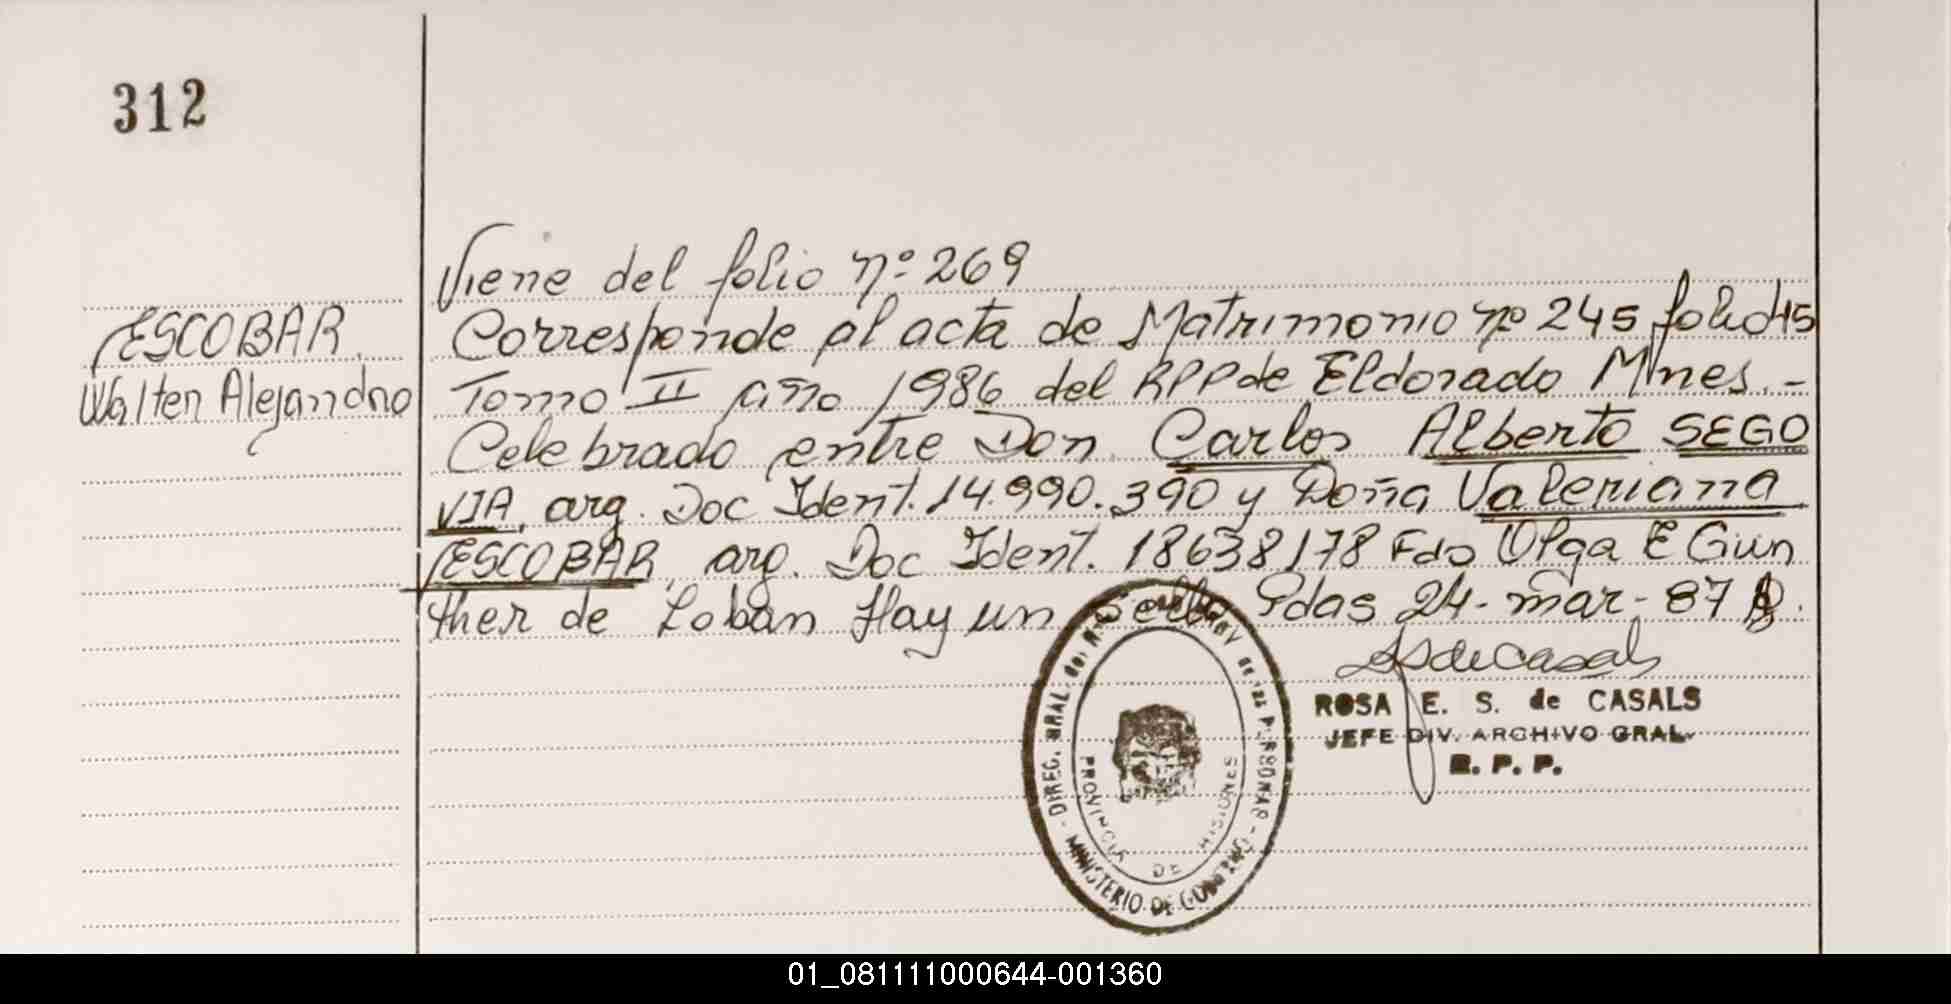 312
Viene del folio nº 269
ESCOBAR
Walter Alejandro
Corresponde al acta de Matrimonio nº 245 folio 45
Tomo II año 1986 del RPP de Eldorado Mnes. -
Celebrado entre Don Carlos Alberto SEGO
VIA, arg. Doc Ident. 14.990.390 y Doña Valeriana
ESCOBAR, arg. Doc Ident. 18638178 Fdo Olga E Gun
ther de Loban Hay un Sello Pdas 24-mar-87
ROSA E. S. de CASALS
JEFE DIV. ARCHIVO GRAL.
R. P. P.
MINISTERIO DE GOBIERNO
PROVINCIA DE MISIONES
01_081111000644-001360